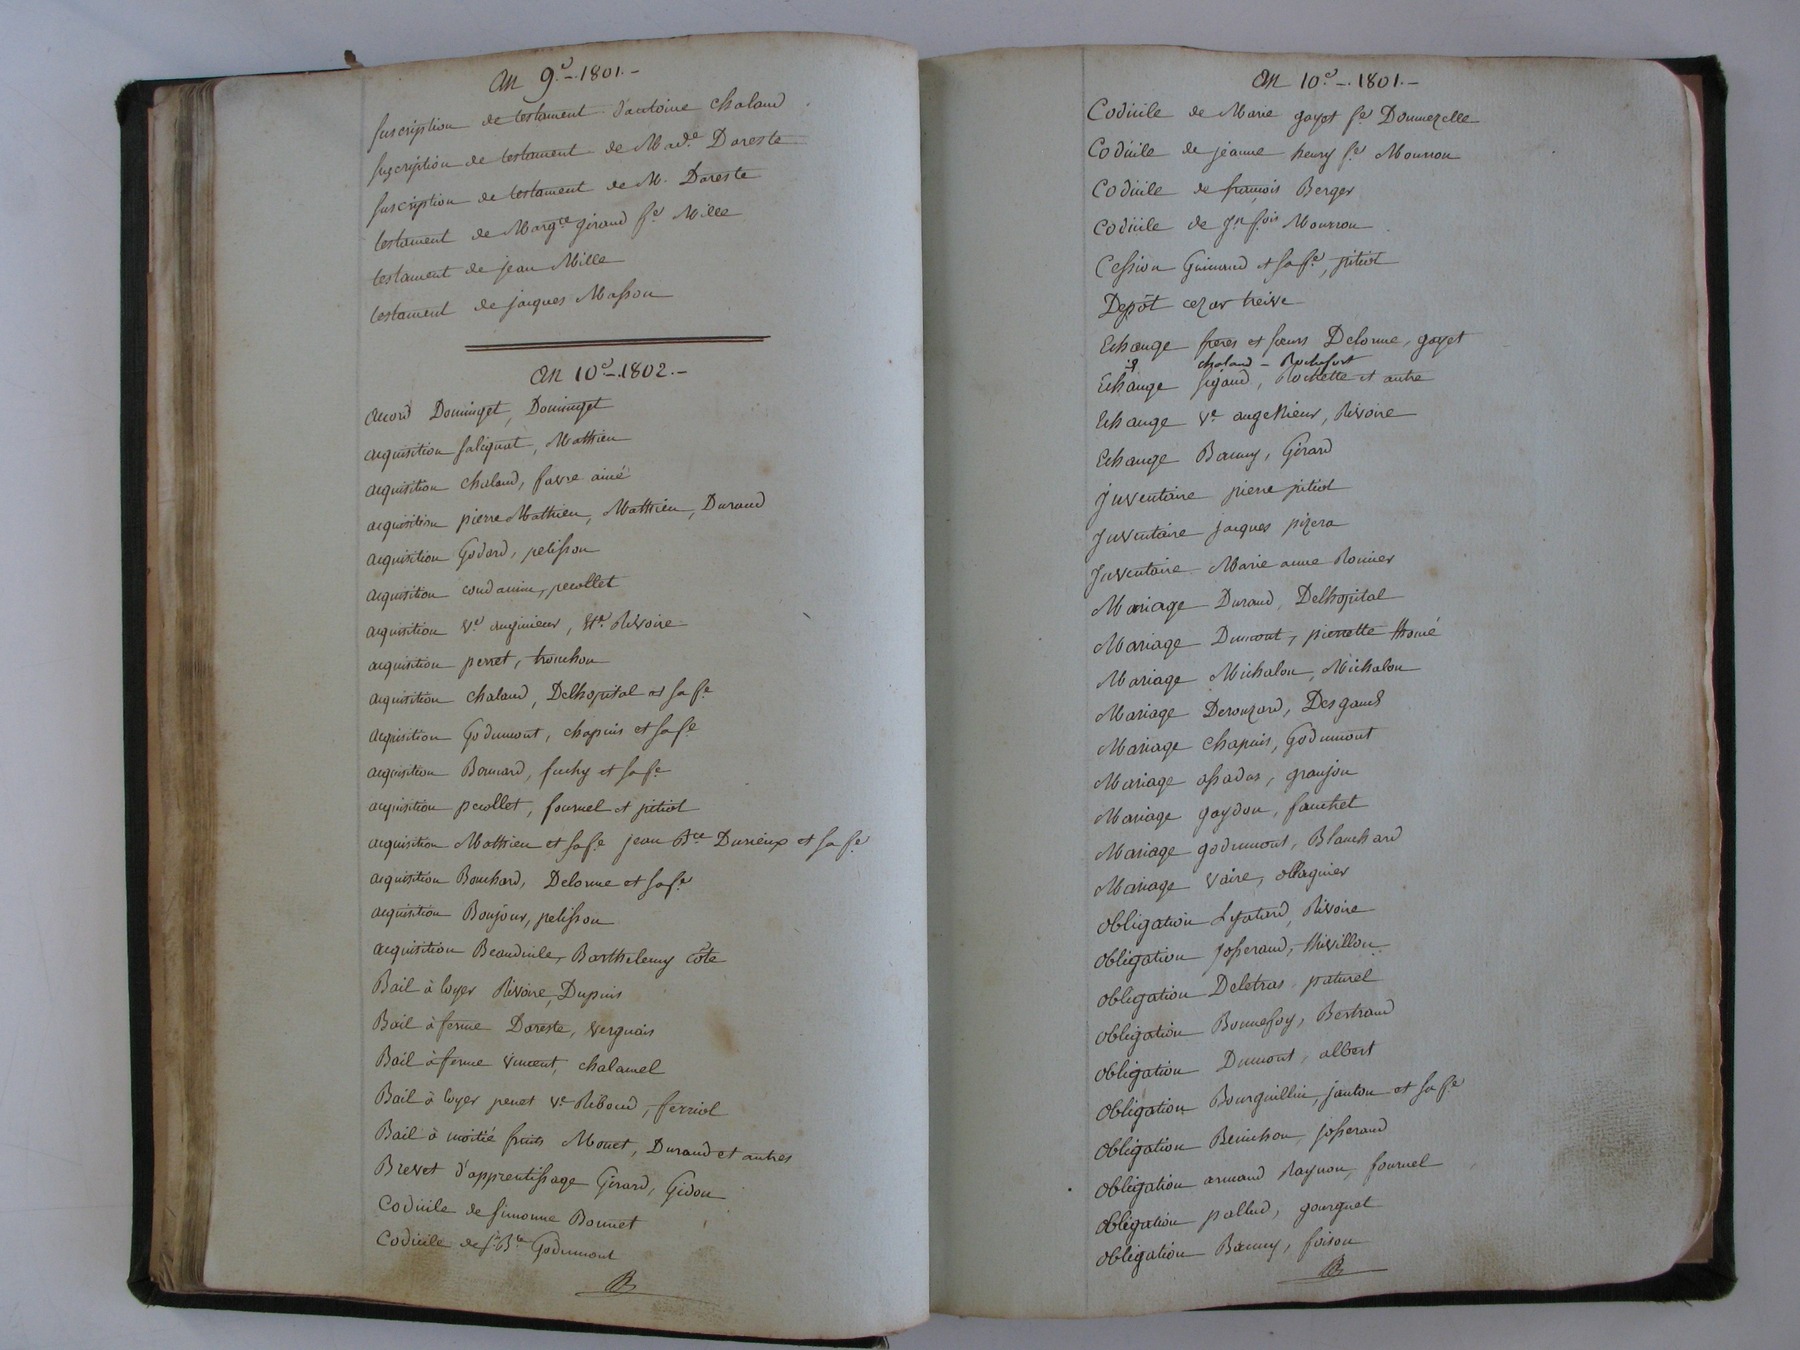 an 9.e - 1801. -
suscription de testament d'antoine chaland
suscription de testament de Mad.e Dareste
suscription de testament de M. Dareste
testament de Marg.te giraud f.e Mille
testament de jean Mille
testament de jacques Masson
an 10.e - 1802. -
accord Dominget, Dominget
acquisition salignat, Mathieu
acquisition chaland, favre ainé
acquisition pierre Mathieu, Mathieu, Durand
acquisition Godard, pelisson
acquisition condamin, pecollet
acquisition v.e anginieur, Rivoire
acquisition perret, tronchon
acquisition chaland, Delhopital et sa f.e
acquisition Godumont, chapuis et sa f.e
acquisition Bonnard, fuchy et sa f.e
acquisition pecollet, fournel et pitiot
acquisition Mathieu et sa f.e jean B.te Durieux et sa f.e
acquisition Bouchard, Delorme et sa f.e
acquisition Bonjour, pelisson
acquisition Beaudicile, Barthelemy Côte
Bail à loyer Rivoire, Dupuis
Bail à ferme Dareste, vergnais
Bail à ferme vincent, chalamel
Bail à loyer v.e Riboud, ferriol
Bail à moitié fruits Monet, Durand et autres
Brevet d'apprentissage Girard, Gidon
Codicile de simonne Bonnet
Codicile de B.te Godumont
an 10.e - 1801. -
Codicile de Marie gayet f.e Dommezelle
Codicile de jeanne henry f.e Mourron
Codicile de françois Berger
Codicile de J.n f.ois Mourron
Cession Guimard et sa f.e, pitiot
Depôt cezar treive
Echange freres et sœurs Delorme, gayet
chaland - Rochefort
Echange sigaud, Rochette et autre
Echange v.e angenieur, Rivoire
Echange Bamy, Girard
Inventaire pierre pitiot
Inventaire jacques pizera
Inventaire Marie anne Ronier
Mariage Durand, Delhopital
Mariage Dumont, pierrette thomé
Mariage Michalon, Michalon
Mariage Derouzard, Desgand
Mariage chapuis, Godumont
Mariage assadas, granjon
Mariage gaydon, fauchet
Mariage godumont, Blanchard
Mariage vaire, ollagnier
obligation Lyatard, Rivoire
obligation josserand, thivillon
obligation Deletras, paturel
obligation Bonnefoy, Bertrand
obligation Dumont, albert
obligation Bourguillin, janton et sa f.e
obligation Beinchon, josserand
obligation armand Raynon, fournel
obligation pallud, gourguet
obligation Bamy, foison